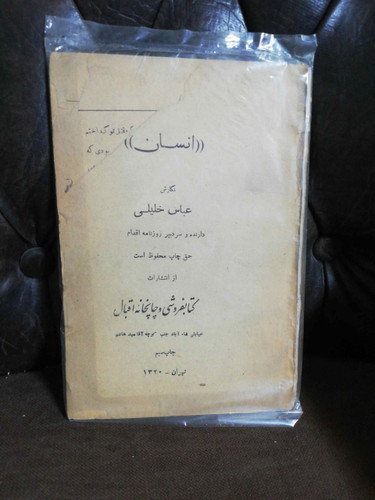 ((انسان))
نگارش
عباس خلیلی
دارنده و سردبیر روزنامه اقدام
حق چاپ محفوظ است
از انتشارات
کتابفروشی و چاپخانه اقبال
چاپ سیم
تهران - ۱۳۲۰